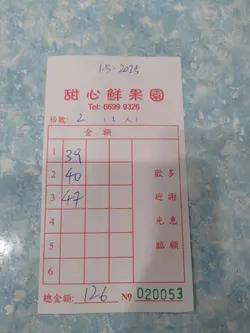 1-5-2025
甜心鮮果園
Tel: 6699 9326
枱號: 2 (2人)
金額
1 39
2 40 歡多
3 47 迎謝
4 光惠
5 臨顧
總金額: 126 № 020053